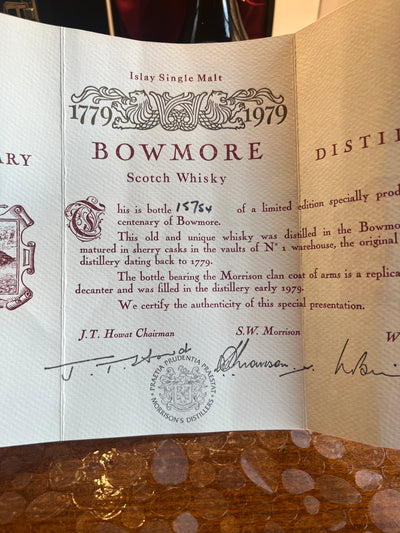 Islay Single Malt
1779 1979
ARY
BOWMORE
DISTIL
Scotch Whisky
This is bottle of a limited edition specially prod
centenary of Bowmore.
This old and unique whisky was distilled in the Bowmo
matured in sherry casks in the vaults of Nº 1 warehouse, the original
distillery dating back to 1779.
The bottle bearing the Morrison clan coat of arms is a replica
decanter and was filled in the distillery early 1979.
We certify the authenticity of this special presentation.
J.T. Howat Chairman S.W. Morrison W
J. T. Howat
PRAETIA PRUDENTIA PRAESTAT
MORRISON'S DISTILLERS